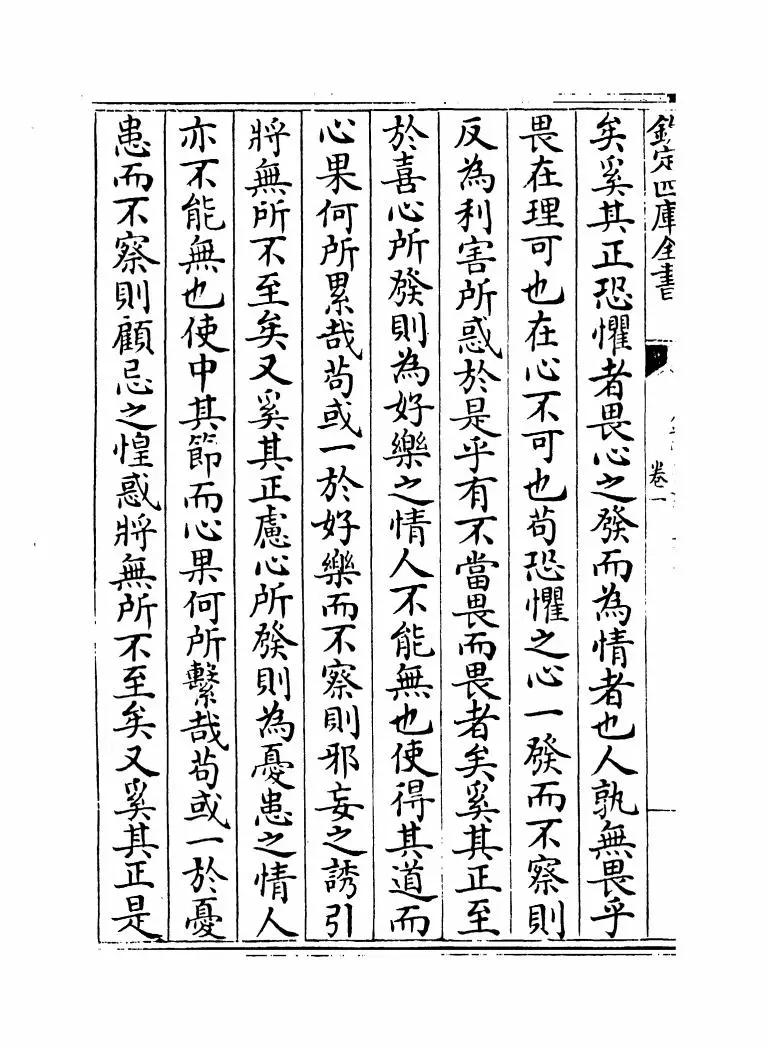 欽定四庫全書
卷一
矣奚其正恐懼者畏心之發而為情者也人孰無畏乎
畏在理可也在心不可也茍恐懼之心一發而不察則
反為利害所惑於是乎有不當畏而畏者矣奚其正至
於喜心所發則為好樂之情人不能無也使得其道而
心果何所累哉茍或一於好樂而不察則邪妄之誘引
將無所不至矣又奚其正慮心所發則為憂患之情人
亦不能無也使中其節而心果何所繫哉茍或一於憂
患而不察則顧忌之惶惑將無所不至矣又奚其正是